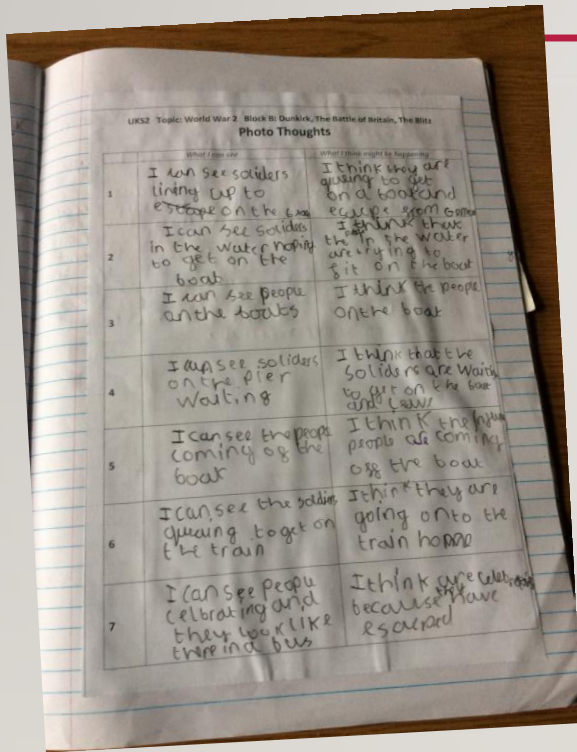 UKS2 Topic: World War 2 Block B: Dunkirk, The Battle of Britain, The Blitz
Photo Thoughts
What I can see
What I think might be happening
1
I can see soliders
lining up to
escape on the
I think they are
to get
on a boat and
escape from
2
I can see soliders
in the water hoping
to get on the
boat
I think that
the in the water
are trying to
fit on the boat
3
I can see people
on the boats
I think the people
on the boat
4
I can see soliders
on the pier
waiting
I think that the
soliders are
to get on the boat
and
5
I can see the people
coming of the
boat
I think the
people are coming
off the boat
6
I can see the
to get on
the train
I think they are
going onto the
train
7
I can see
celbrating and
they look like
there in a bus
I think are
they
because have
escaped